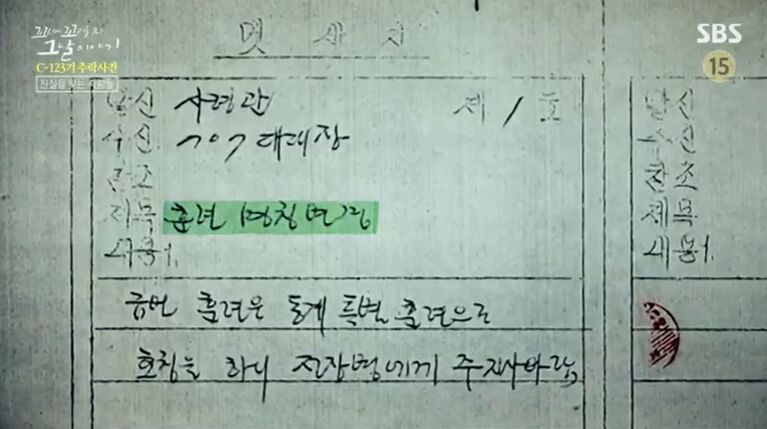 꼬리에 꼬리를 무는
그날 이야기
C-123기 추락사건
진실을 찾는 사람들
SBS
15
멧세지
발신 사령관
제 1 호
수신 707대대장
참조
제목 훈련 명칭변경
내용1.
금번 훈련은 동계 특별 훈련으로
호칭을 하니 전장병에게 주지시바람,
발신
수신
참조
제목
내용1.